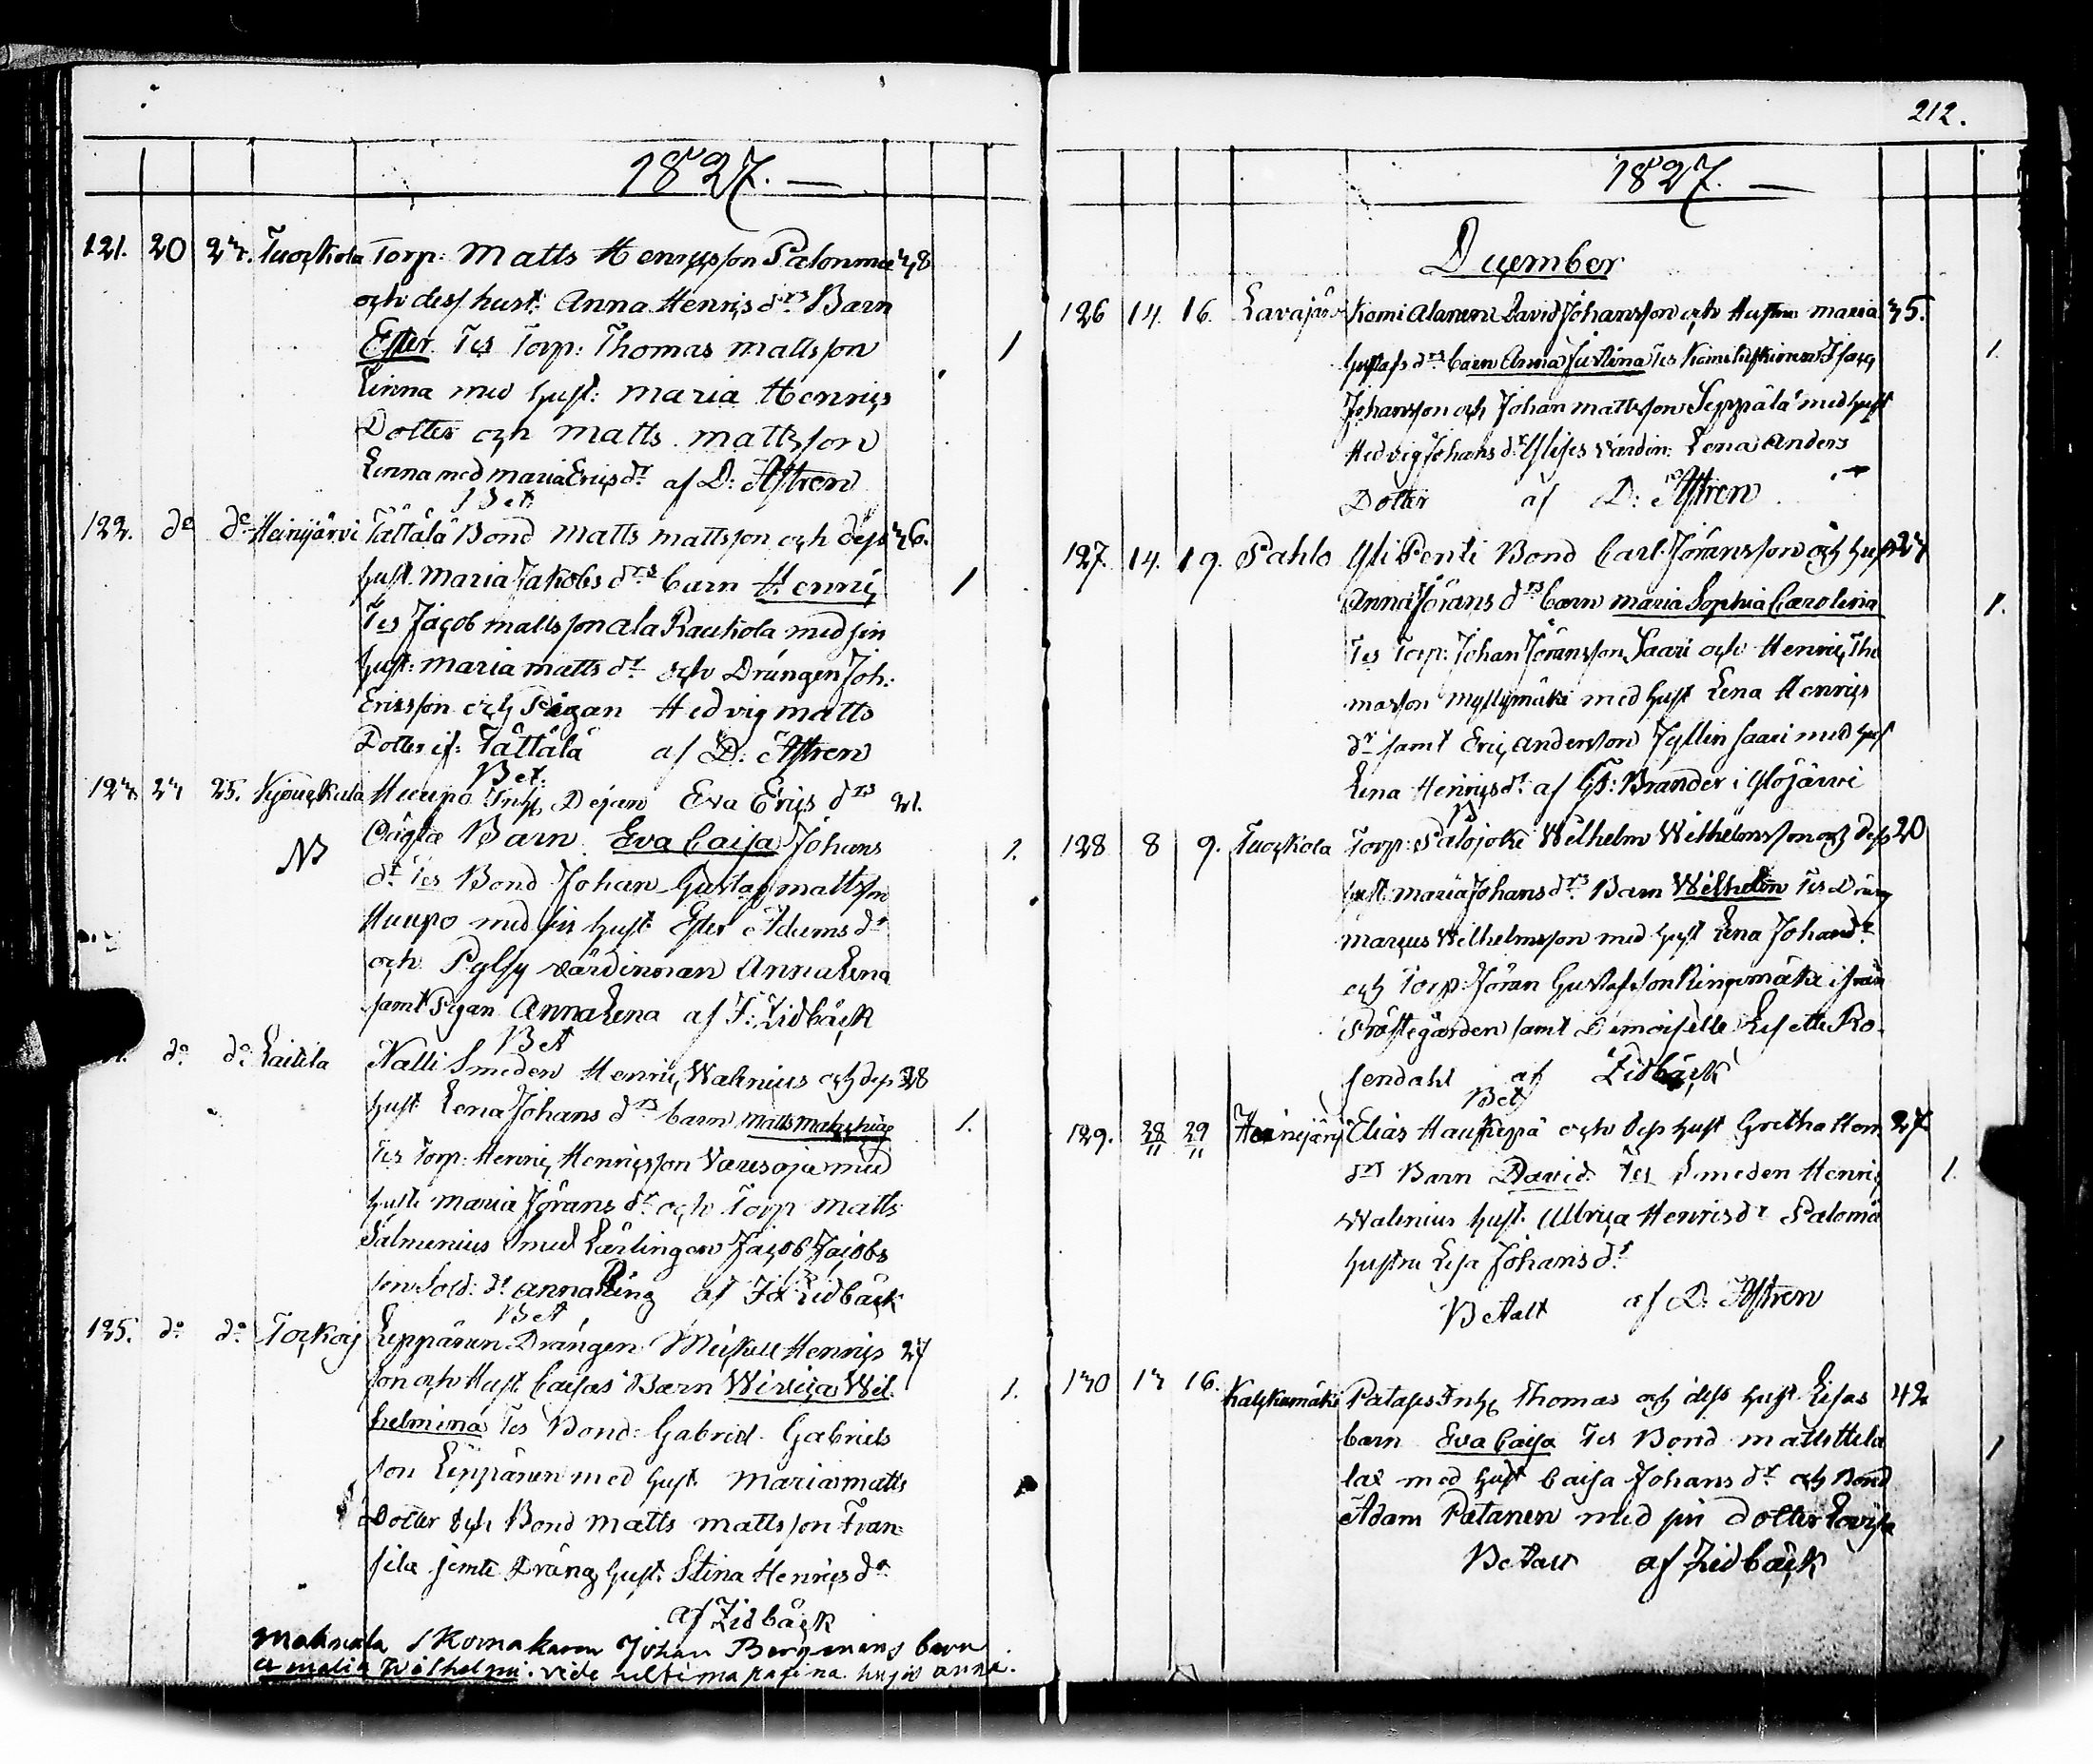 1827.
121. 20 23. Tuorkola Torp: Matts Henrysson Palonmä 38
och dess hust: Anna Henrics drs Barn
Ester Tes Torp: Thomas Mattsson 1
Linna med hust: Maria Henrics
Dotter och Matts Mattsson
Linna med Maria Erics dr af D: Åstren
Bet
122. do do Heinijärvi Tättälä Bond Matts Mattsson och dess 36.
hust. Maria Jakobs drs barn Henric 1
Tes Jacob Mattsson ala Raukola med sin
hust: Maria Matts dr och Drängen Joh:
Ericsson och Pigan Hedvig Matts
Dotter if: Tättälä af D. Åstren
Bet:
123 23 25. Huupo Inh. Dejan Eva Erics drs 21.
NB Oägta Barn Eva Caisa Johans 1.
dr Tes Bond Johan Gustaf Mattsson
Huupo med sin hust: Ester Adams dr
och värdinnan Anna Lena
samt Pigan Anna Lena af F: Lidbäck
Bet
do do Laitila Nalli Smeden Henric Walenius och dess 38
hust Lena Johans drs barn Matts 1.
Tes Torp: Henric Henricsson Varesoja med
hust: Maria Jörans dr och Torp Matts
Salmenius med Lärlingen Jacob Jacobs
son Sold: dr Anna Ring af Lidbäck
Bet
125. do do Leppänen Drängen Mickell Henrics 27
son och Hust Caisas Barn Wil- 1.
helmina Tes Bond: Gabriel Gabriels
son Leppänen med hust. Maria Matts
Dotter och Bond Matts Mattsson Fran
sila jemte Dräng hust: Stina Henrics dr
af Lidbäck
Skomakaren Johan Bergmans barn
Amalia Wilhelmi. vide ultima pagina hujus anni.
212.
1827.
December
126 14. 16. Lavajärvi Komi Alanen David Johansson och Hustru Maria 35.
Gustafs drs barn Anna Justina Tes Isaac 1.
Johansson och Johan Mattsson Seppälä med hust
Hedvig Johans dr värdin: Lena Anders
Dotter af D: Åstren
127. 14. 19. Pahlo Yli Penti Bond Carl Göransson och hust 27
Anna Jörans drs barn Maria Sophia Carolina 1.
Tes Torp: Johan Göransson Saari och Henric Tho
masson Myllymäki med hust Lena Henrics
dr samt Eric Andersson Jyllin Saari med hust
Lena Henrics dr. af G: Brander i Ylöjärvi
B
128 8 9. Tuorkola Torp: Palojoki Wilhelm Wilhelmsson och dess 20
hust Maria Johans drs Barn Wilhelm Tes Dräng
Marcus Wilhelmsson med hust Lena Johans dr
och Torp: Jöran Gustafsson Ringomäki ifrån
Prästegården samt Demoiselle Lisette Ro-
sendahl af Lidbäck
Bet
129. 28/11 29/11 Heinijärvi Elias Haukippä och dess hust Gretha Hen 27
drs Barn David Tes Smeden Henric 1.
Walenius hust. Ulrica Henrics dr Palomä
hustru Lisa Johans dr
Betalt af D. Åstren
130 13 16. Kalkunmäki Patajas Inh. Thomas och dess hust Lisas 42
barn Eva Caisa Tes Bond Matts Hela 1
lax med hust Caisa Johans dr och Bond
Adam Patanen med sin dotter Lovisa
Betalt af Lidbäck